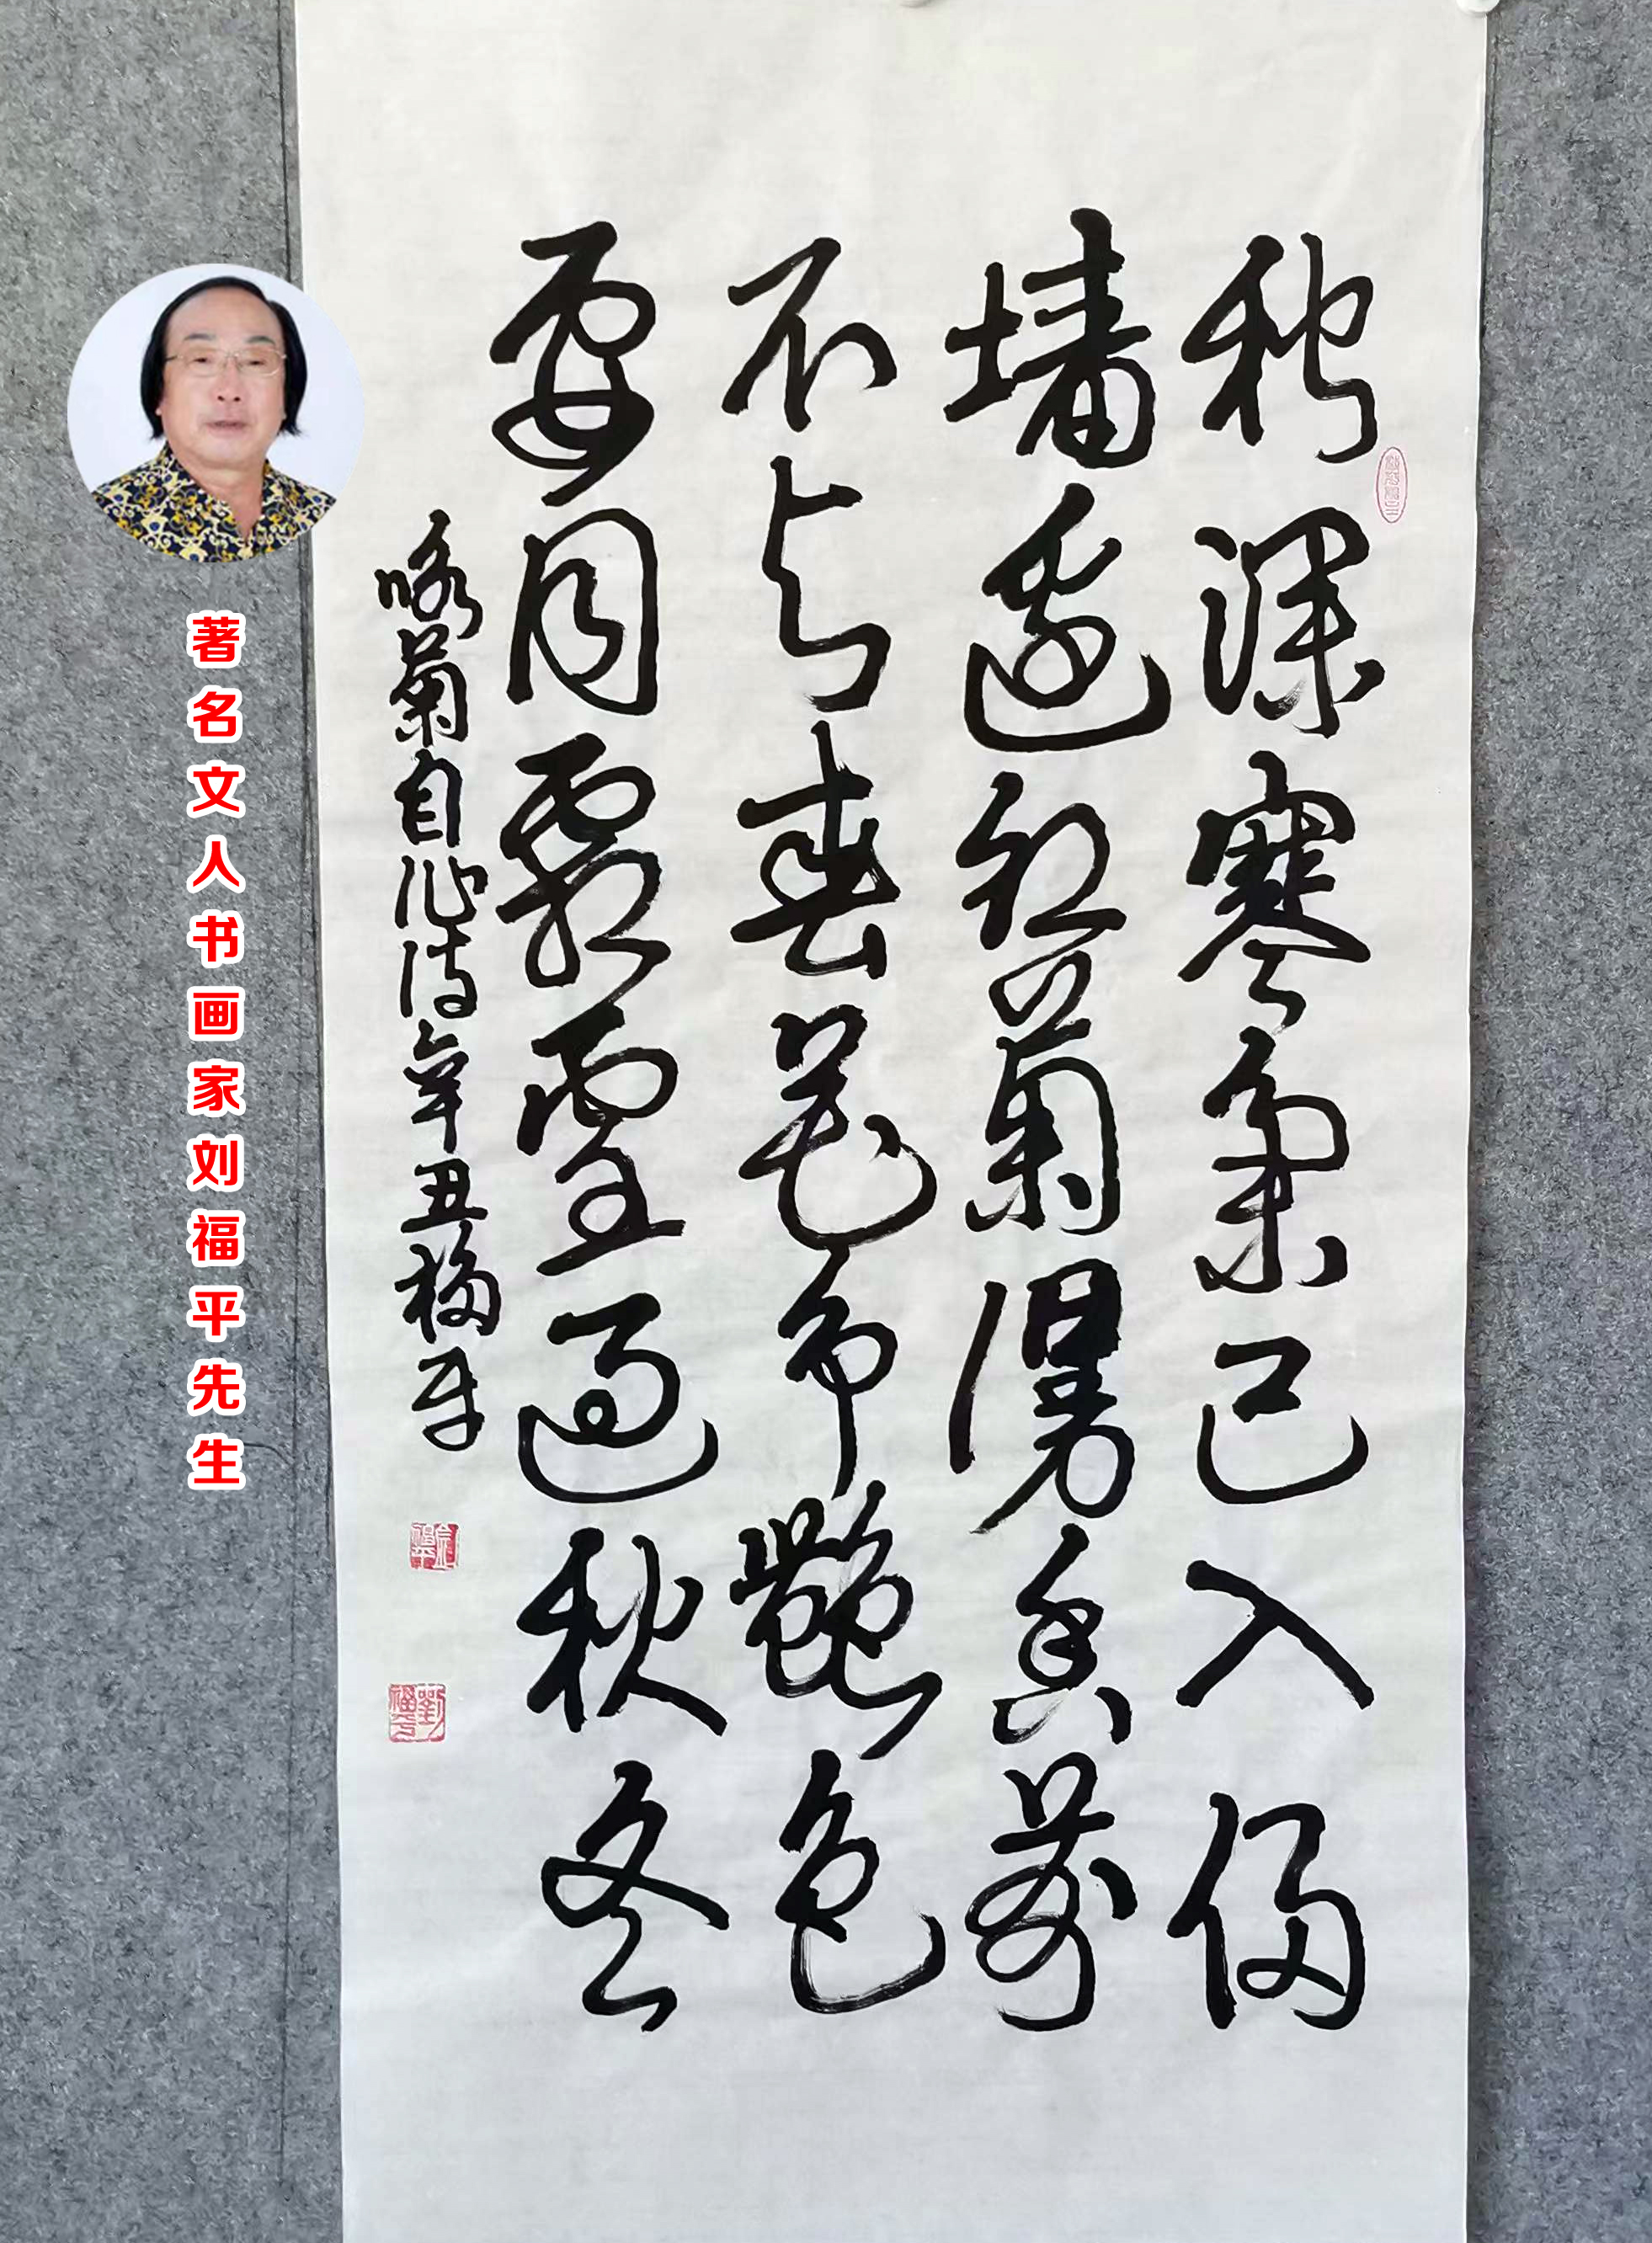 秋深寒氣已入
墙边红菊漫香
不与春花争艷色
要同霜雪过秋冬
咏菊自作诗辛丑福平
著名文人书画家刘福平先生